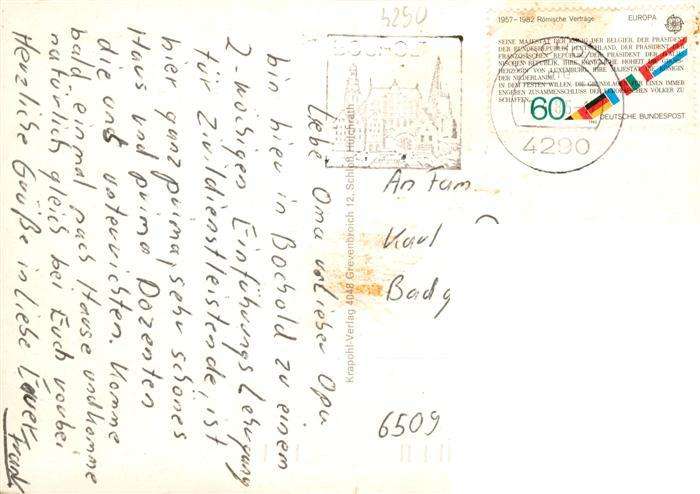 Liebe Oma u. lieber Opa
bin hier in Bocholt zu einem
2-wöchigen Einführungslehrgang
für Zivildienstleistende, ist
hier ganz prima, sehr schönes
Haus und prima Dozenten
die uns unterrichten. Komme
bald einmal nach Hause und komme
natürlich gleich bei Euch vorbei
Herzliche Grüße in Liebe Euer
Frank
Krapohl-Verlag 4048 Grevenbroich 12, Schloß Hülchrath
4290
1957-1982 Römische Verträge EUROPA
SEINE MAJESTÄT DER KÖNIG DER BELGIER, DER PRÄSIDENT
DER BUNDESREPUBLIK DEUTSCHLAND, DER PRÄSIDENT DER
FRANZÖSISCHEN REPUBLIK, DER PRÄSIDENT DER
ITALIENISCHEN REPUBLIK, IHRE KÖNIGLICHE HOHEIT DIE
HERZOGIN VON LUXEMBURG, IHRE MAJESTÄT DIE KÖNIGIN
DER NIEDERLANDE,
IN DEM FESTEN WILLEN, DIE GRUNDLAGEN FÜR EINEN IMMER
ENGEREN ZUSAMMENSCHLUSS DER EUROPÄISCHEN VÖLKER ZU
SCHAFFEN,
60
DEUTSCHE BUNDESPOST
4290
An Fam
Karl
Bad
6509